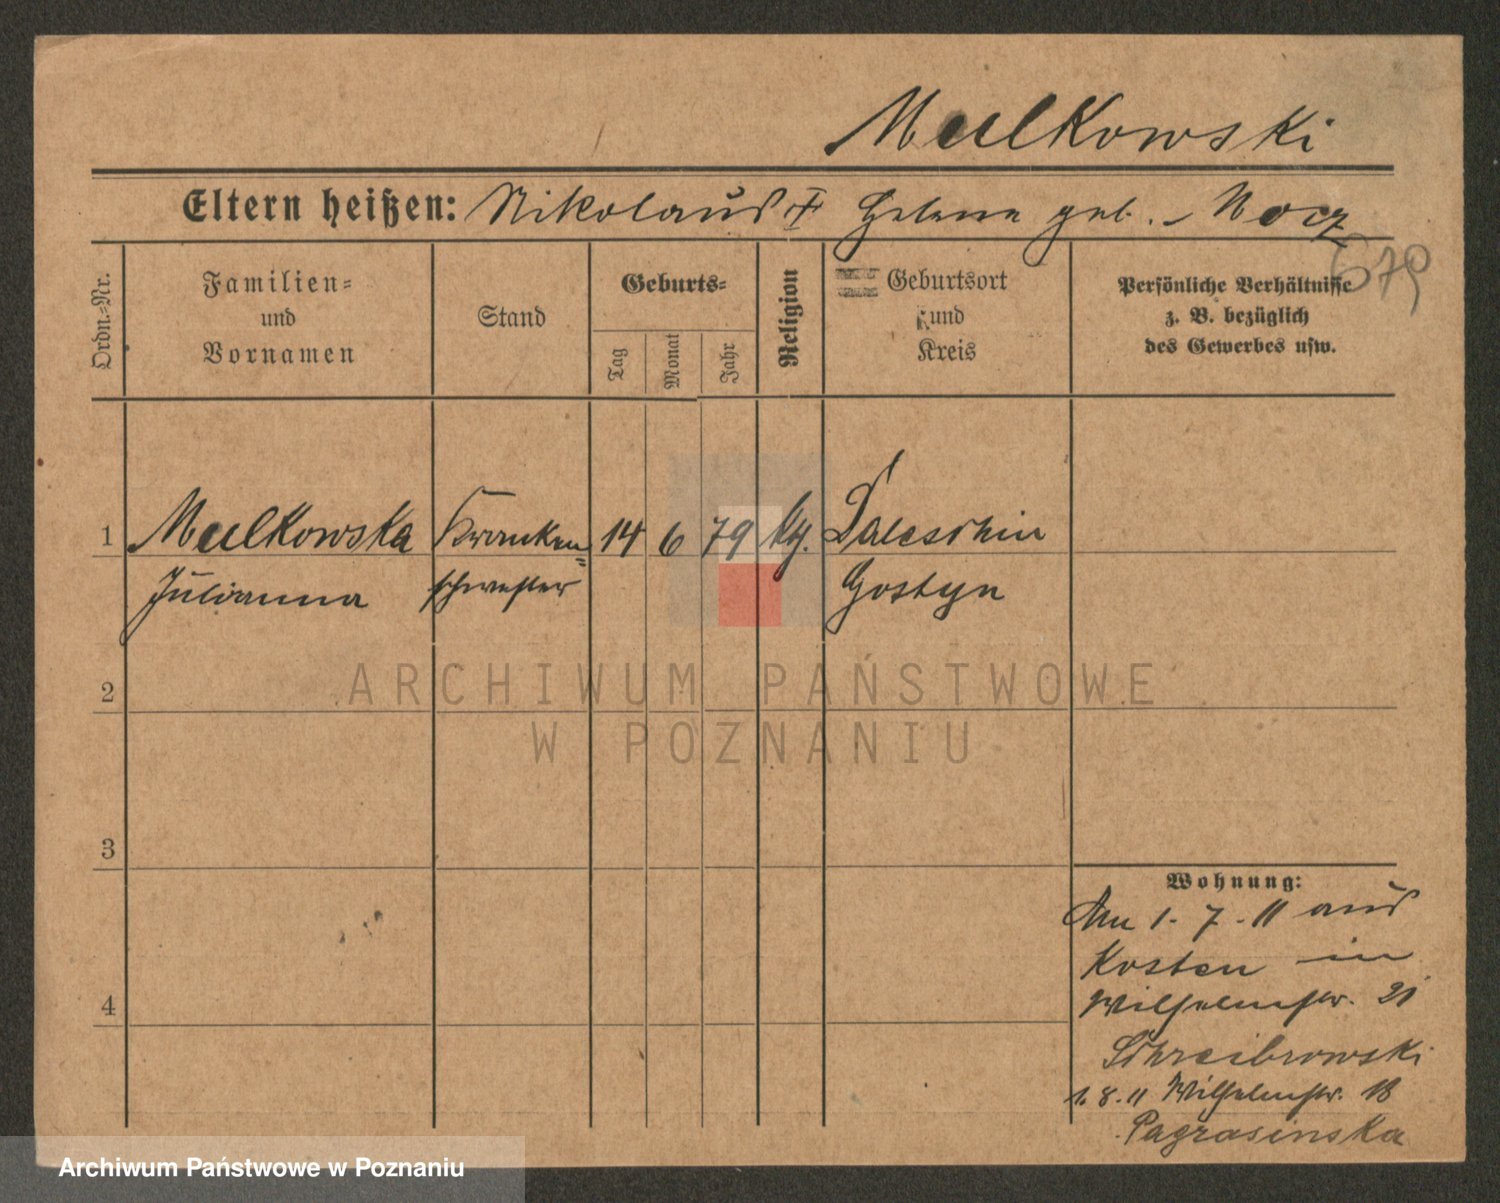 Mulkowski
Eltern heißen: Nikolaus † Helene geb. - Nocz
679
Ordn.-Nr.
Familien=
und
Vornamen
Stand
Geburts=
Tag
Monat
Jahr
Religion
Geburtsort
und
Kreis
Persönliche Verhältnisse
z. B. bezüglich
des Gewerbes usw.
1 Mulkowska Kranken= 14 6 79 Daleschin
Julianna schwester Gostyn
2
3
4
Wohnung:
1. 7. 11 aus
Kosten in
Wilhelmstr. 21
Schreibrowski
1. 8. 11 Wilhelmstr. 18
Pagrasinska
ARCHIWUM PAŃSTWOWE
W POZNANIU
Archiwum Państwowe w Poznaniu